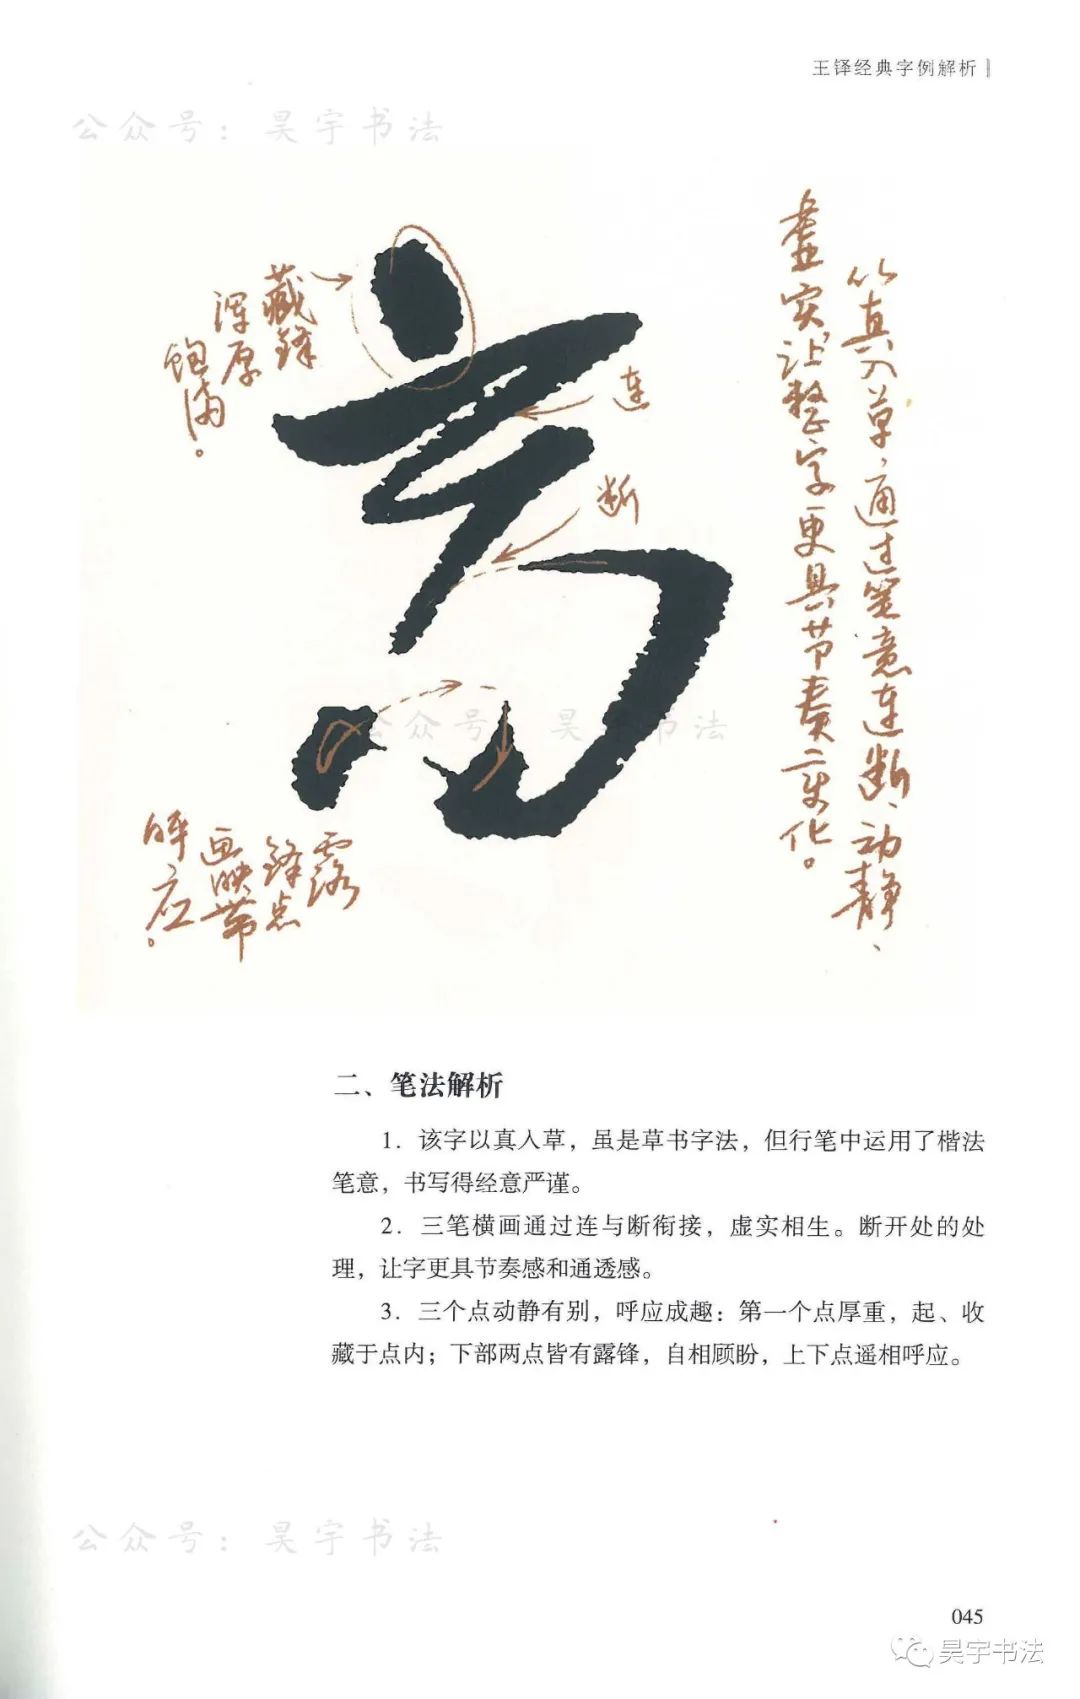 王铎经典字例解析
公众号：昊宇书法
以真入草，通过笔意连断、动静、
虚实，让整字更具节奏变化。
藏锋
浑厚
饱满。
连
断
高
公众号：昊宇书法
露
锋点
画映带
呼应。
二、笔法解析
1．该字以真入草，虽是草书字法，但行笔中运用了楷法
笔意，书写得经意严谨。
2．三笔横画通过连与断衔接，虚实相生。断开处的处
理，让字更具节奏感和通透感。
3．三个点动静有别，呼应成趣：第一个点厚重，起、收
藏于点内；下部两点皆有露锋，自相顾盼，上下点遥相呼应。
公众号：昊宇书法
045
昊宇书法